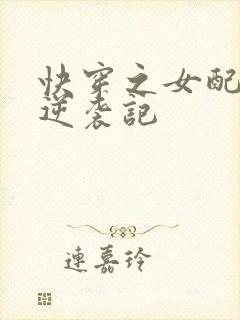 快穿之女配
逆袭記
連嘉玲